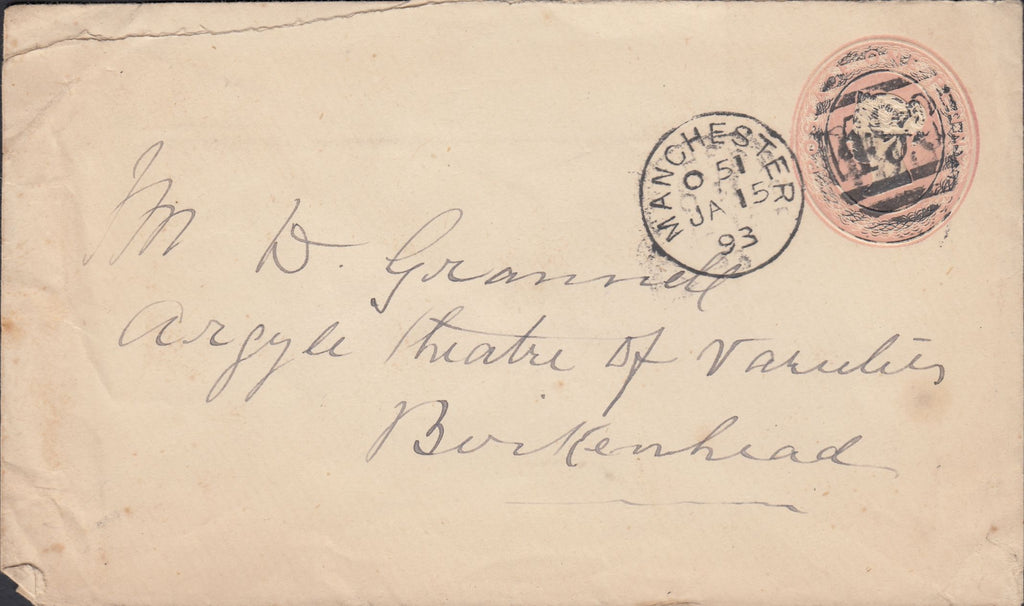 MANCHESTER
O 51
JA 15
93
Mr D. Grannell
Argyle Theatre of Varieties
Birkenhead